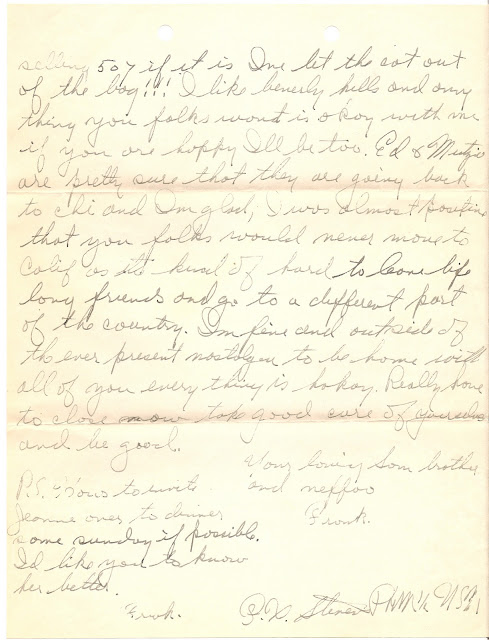 selling 507 if it is Ive let the cat out
of the bag!!! I like beverly hills and any
thing you folks want is okay with me
if you are happy Ill be too. Ed & Mutzie
are pretty sure that they are going back
to chi and Im glad, I was almost positive
that you folks would never move to
Calif as its kind of hard to leave life
long friends and go to a different part
of the country. Im fine and outside of
the ever present nostalgia to be home with
all of you every thing is hokay. Really have
to close now take good care of yourselves
and be good.
Your loving Son brother
and neffoo
Frank.
P.S. to invite
Jeanne over to dinner
some sunday if possible.
Id like you to know
her better.
Frank.